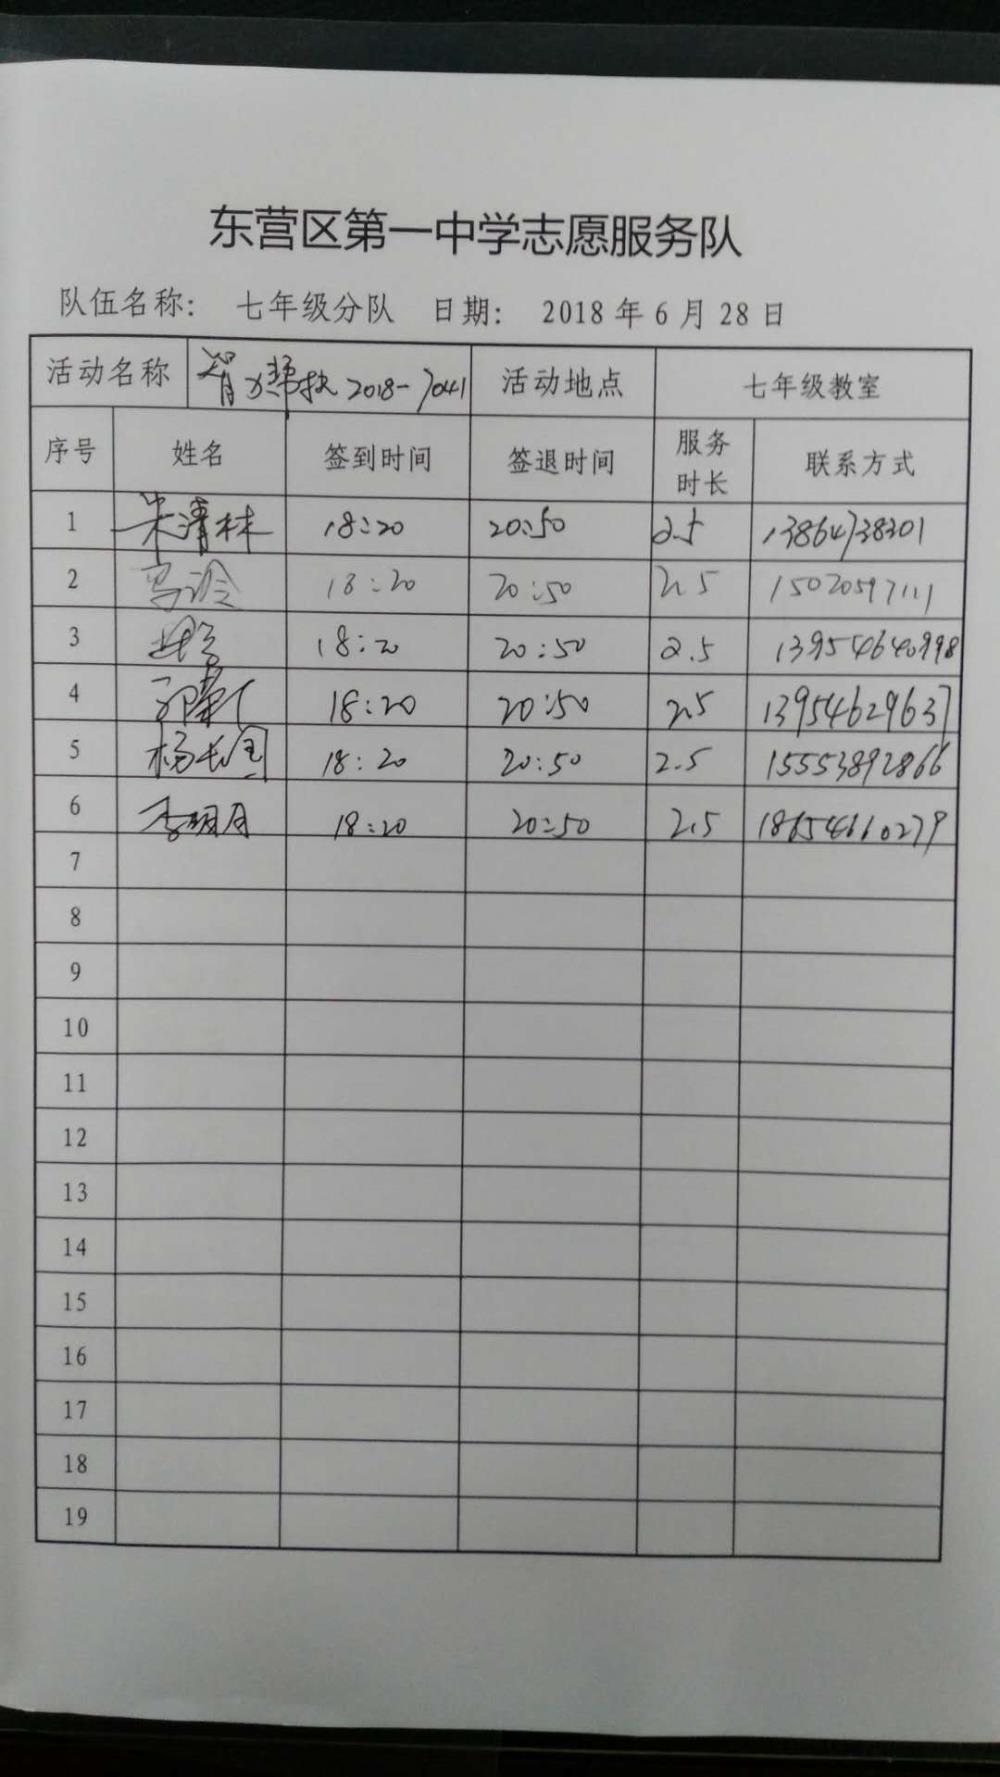 东营区第一中学志愿服务队
队伍名称: 七年级分队 日期: 2018年6月28日
活动名称 智力帮扶2018-7041 活动地点 七年级教室
序号 姓名 签到时间 签退时间 服务时长 联系方式
1 朱清林 18:20 20:50 2.5 13864738301
2 18:20 20:50 2.5 15020597111
3 18:20 20:50 2.5 13954640998
4 18:20 20:50 2.5 13954629637
5 杨长国 18:20 20:50 2.5 15553892866
6 李明月 18:20 20:50 2.5 18654610279
7
8
9
10
11
12
13
14
15
16
17
18
19